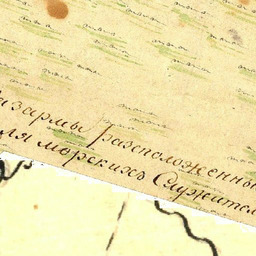 казармы расположенны
для морскихъ Служител